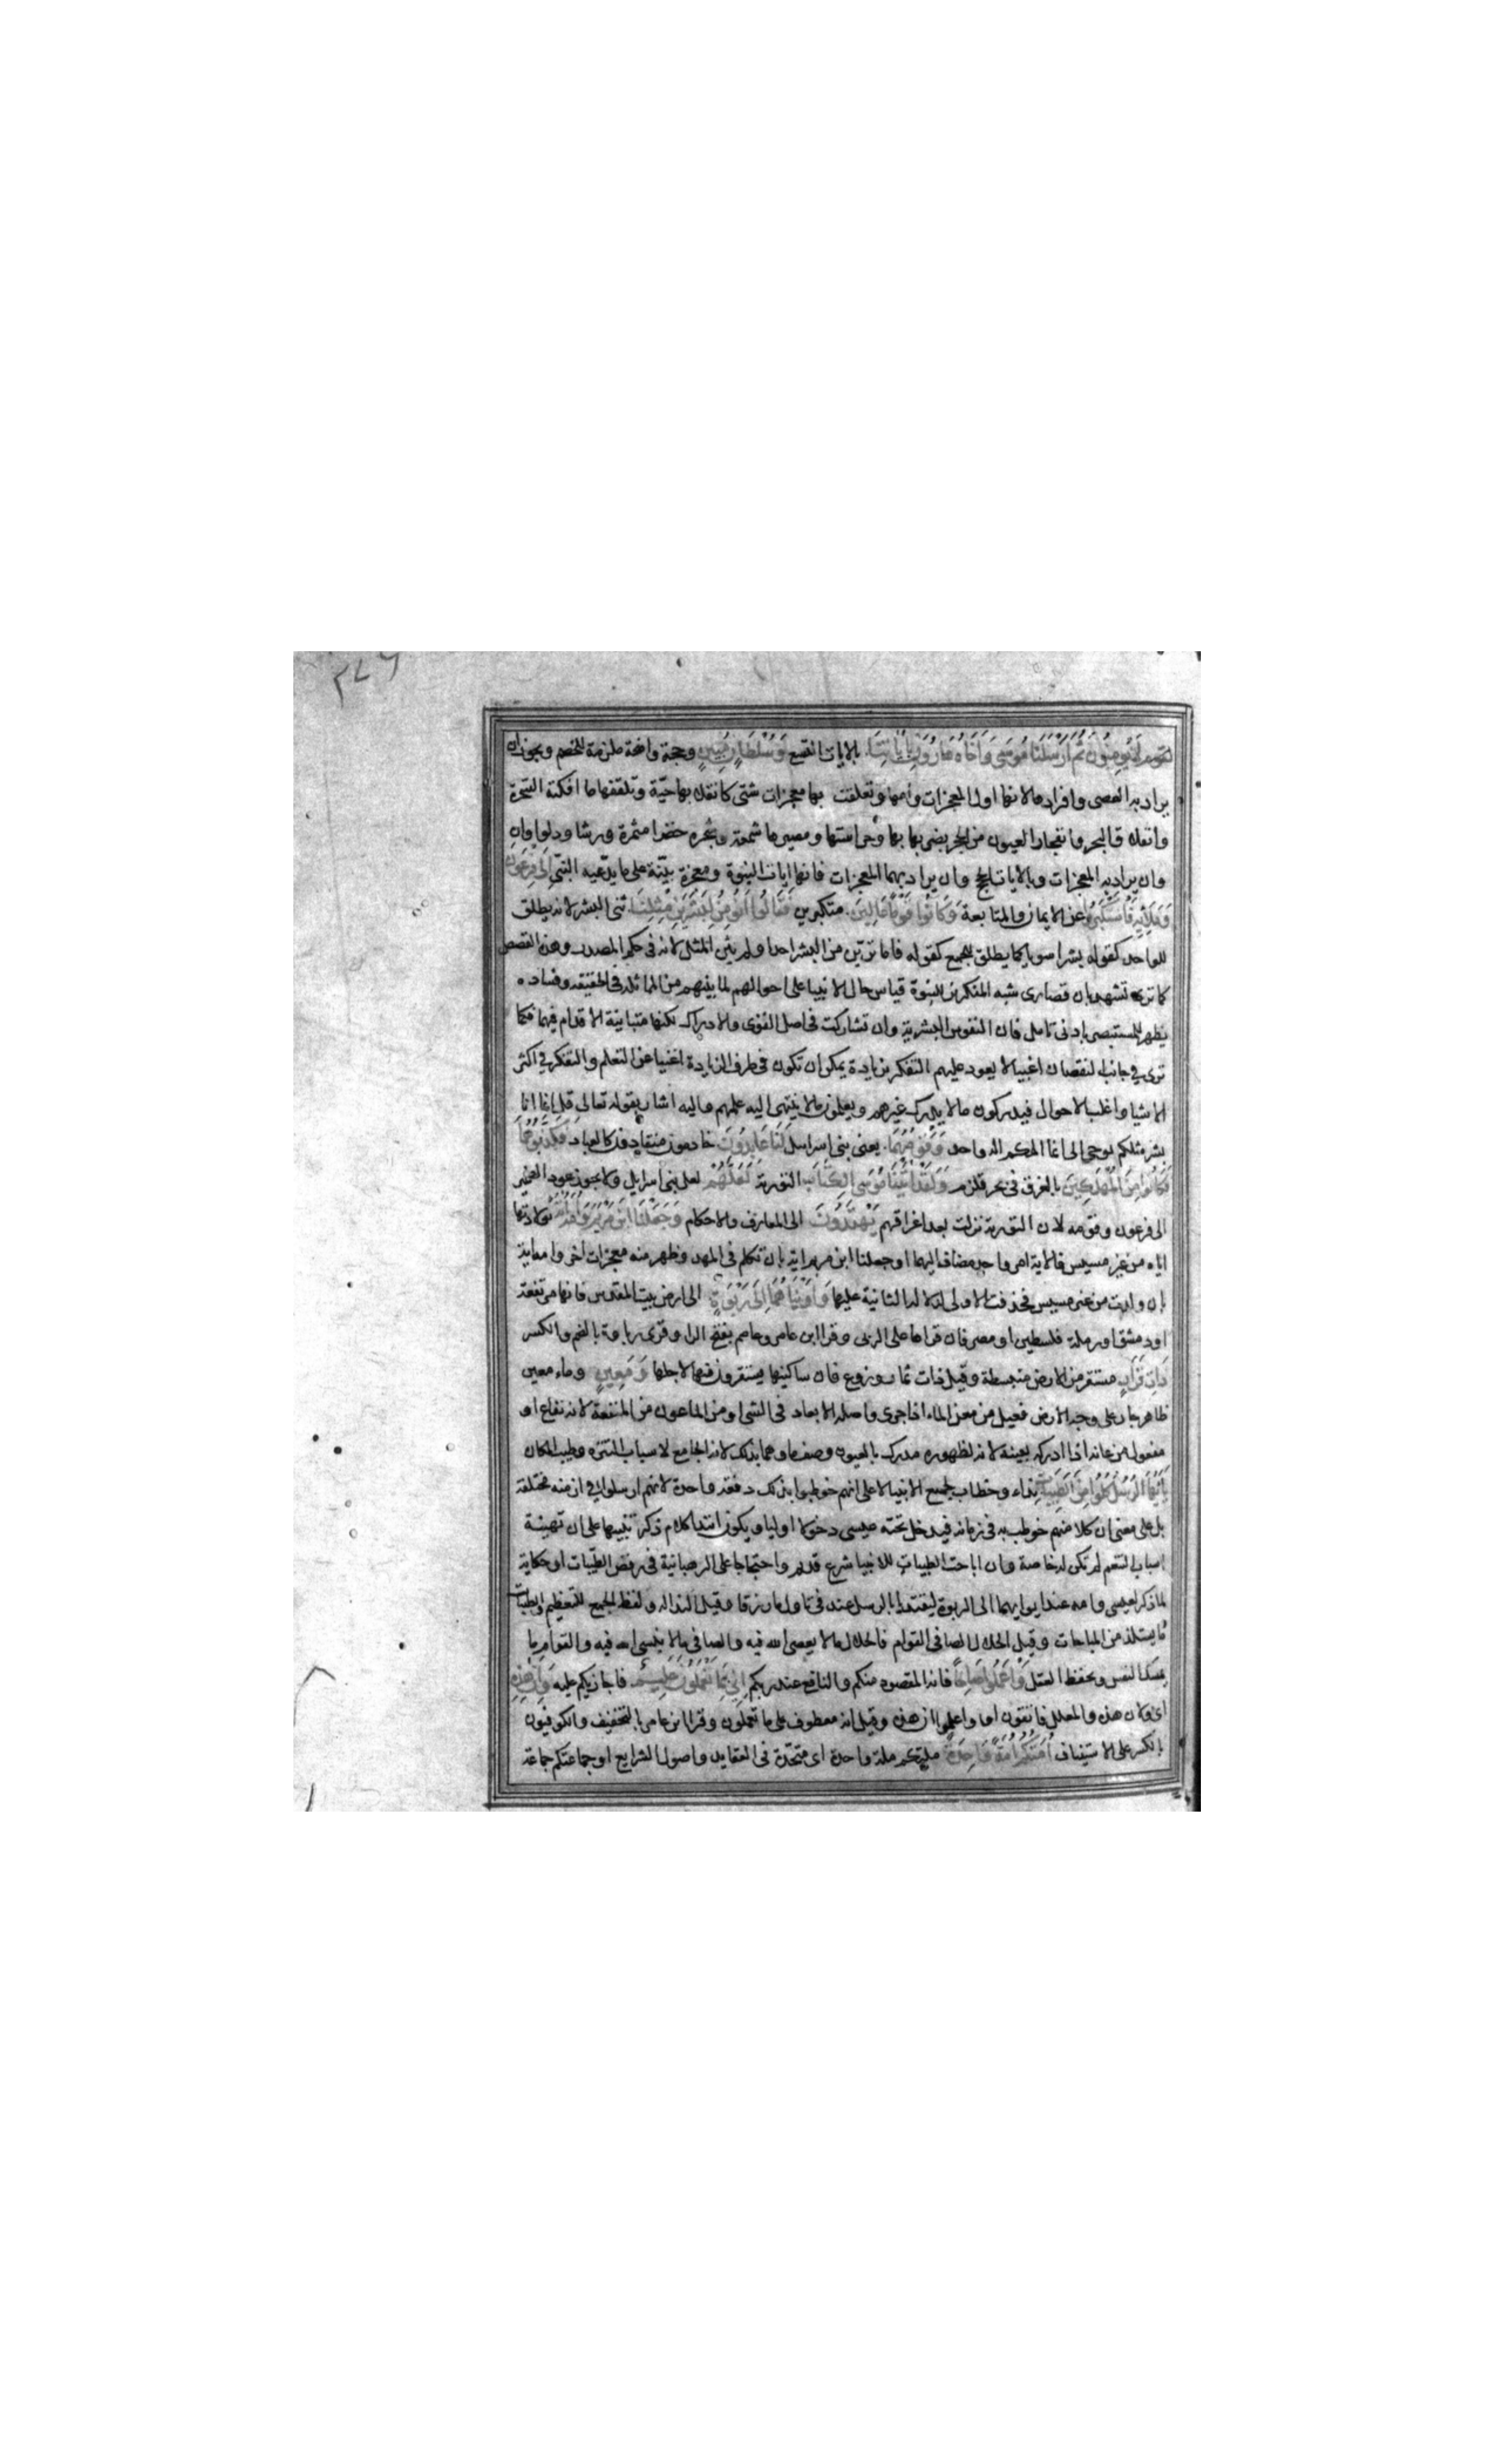 ٢٧٦
لقوم لا يومنون ثُمَّ اَرْسَلْنَا مُوسَى وَاَخَاهُ هَارُونَ بِاٰيَاتِنَا بالايات التسع وَسُلْطَانٍ مُبِينٍ وحجة واضحة ملزمة للخصم ويجوز ان
يراد به العصى وافرادها لانها اول المعجزات وامها وتعلقت بها معجزات شتى كانقلابها حيّة وتلقفها ما افكته السّحرة
وانفلاق البحر وانفجار العيون من الحجر بضربهما بها وحراستها ومصيرها شمعة وشجرة خضرا مثمرة ورشا ودلوا وان
وان يراد به المعجزات وبالايات الحجج وان يراد بهما المعجزات فانها ايات النبوة ومعجزة بيّنة على ما يدّعيه النبّى اِلَى فِرْعَوْنَ
وَمَلَائِهِ فَاسْتَكْبَرُوا عن الايمان والمتابعة وَكَانُوا قَوْمًا عَالِينَ متكبرين فَقَالُوا اَنُؤْمِنُ لِبَشَرَيْنِ مِثْلِنَا ثنى البشر لانه يطلق
للواحد كقوله بشرا سويا كما يطلق للجمع كقوله فاما تريّن من البشر احدا ولم يثن المثل لانه فى حكم المصدر وهذه القصص
كما ترى تشهد بان قصارى شبه المنكرين للنبوة قياس حال الانبيا على احوالهم لما بينهم من المماثلة فى الحقيقة وفساده
يظهر للمستبصر بادنى تامل فان النفوس البشرية وان تشاركت فى اصل القوى والادراك لكنها متباينة الاقدام فيهما فكما
ترى فى جانب النقصان اغبيا لا يعود عليهم التفكر بزيادة يمكن ان تكون فى طرف الزيادة اغنيا عن التعلم والتفكر فى اكثر
الاشيا واغلب الاحوال فيدركون ما لا يدرك غيرهم ويعلمون ما لا ينتهى اليه علمهم واليه اشار بقوله تعالى قل انما انا
بشر مثلكم يوحى الى انما الهكم اله واحد وَقَوْمُهُمَا يعنى بنى اسرايل لَنَا عَابِدُونَ خادمون منقادون كالعباد فَكَذَّبُوهُمَا
فَكَانُوا مِنَ الْمُهْلَكِينَ بالغرق فى بحر قلزم وَلَقَدْ اٰتَيْنَا مُوسَى الْكِتَابَ التورية لَعَلَّهُمْ لعل بنى اسرايل ولا يجوز عود الضمير
الى فرعون وقومه لان التورية نزلت بعد اغراقهم يَهْتَدُونَ الى المعارف والاحكام وَجَعَلْنَا ابْنَ مَرْيَمَ وَاُمَّهُ اٰيَةً بولادتها
اياه من غير مسيس فالاية امر واحد مضاف اليهما او جعلنا ابن مريم اية بان تكلم فى المهد وظهر منه معجزات اخر وامه اية
بان ولدت من غير مسيس فحذفت الاولى لدلالة الثانية عليها وَاٰوَيْنَاهُمَا اِلَى رَبْوَةٍ الى ارض بيت المقدس فانها مرتفعة
او دمشق او رملة فلسطين او مصر فان قراها على الربى وقرا ابن عامر وعاصم بفتح الرا وقرى رباوة بالضم والكسر
ذَاتِ قَرَارٍ مستقر من الارض منبسطة وقيل ذات ثمار وزروع فان ساكنيها يستقرون فيها لاجلها وَمَعِينٍ وماء معين
ظاهر جار على وجه الارض فعيل من معن الماء اذا جرى واصله الابعاد فى الشى او من الماعون من المنفعة لانه نفاع او
مفعول من عانه اذا ادركه بعينه لانه لظهوره مدرك بالعيون وصف ماوهما بذلك لانه الجامع لاسباب التنزه وطيب المكان
يَا اَيُّهَا الرُّسُلُ كُلُوا مِنَ الطَّيِّبَاتِ نداء وخطاب لجميع الانبيا لا على انهم خوطبوا بذلك دفعة واحدة لانهم ارسلوا فى ازمنه مختلفة
بل على معنى ان كلا منهم خوطب به فى زمانه فيدخل تحته عيسى دخولا اوليا ويكون ابتدا كلام ذكر تنبيها على ان تهيئة
اسباب التنعم لم تكن له خاصة وان اباحت الطيبات للانبيا شرع قديم واحتجاجا على الرهبانية فى رفض الطّيبات او حكاية
لما ذكر لعيسى وامه عند ايوايهما الى الربوة ليقتديا بالرسل عند فى تناول ما رزقا وقيل الندا له ولفظ الجمع للتعظيم والطيبات
ما يستلذ من المباحات وقيل الحلال الصافى القوام فالحلال ما لا يعصى الله فيه والصافى ما لا ينسى الله فيه والقوام ما
يمسك النفس ويحفظ العقل وَاعْمَلُوا صَالِحًا فانه المقصود منكم والنافع عند ربكم اِنِّي بِمَا تَعْمَلُونَ عَلِيمٌ فاجازيكم عليه وَاَنَّ هٰذِهِ
اى ولان هذه والمعلل فاتقون او واعلموا ان هذه وقيل انه معطوف على ما تعملون وقرا ابن عامر بالتخفيف والكوفيون
بالكسر على الاستيناف اُمَّتُكُمْ اُمَّةً وَاحِدَةً ملتكم ملة واحدة اى متحّدة فى العقايد واصول الشرايع او جماعتكم جماعة